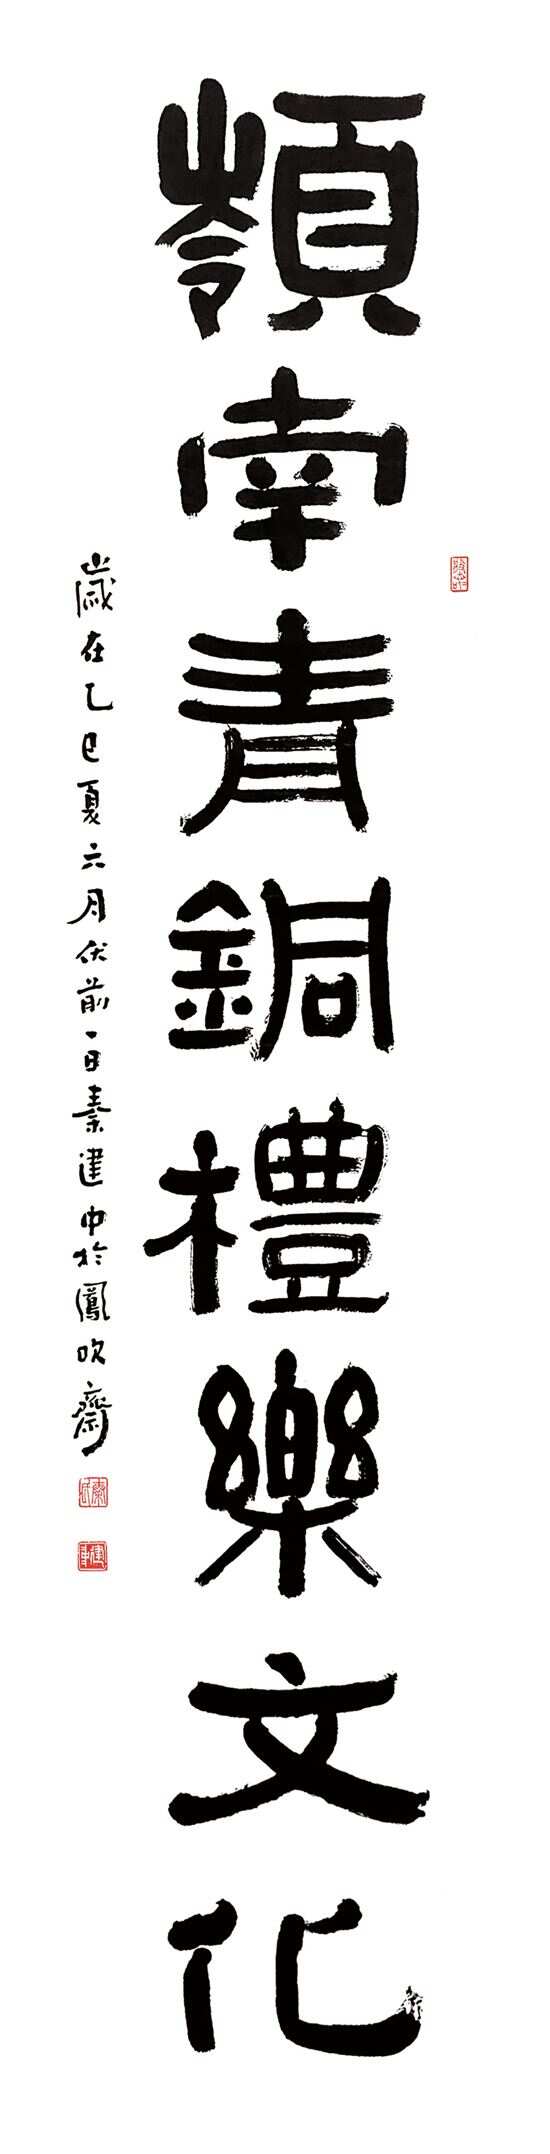 嶺南青銅禮樂文化
歲在乙巳夏六月伏前一日秦建中於鳳吹齋